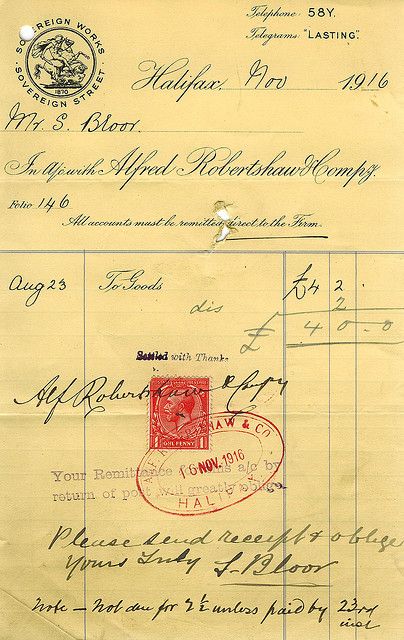 Telephone 58Y.
Telegrams "LASTING".
SOVEREIGN WORKS · SOVEREIGN STREET
1870
Halifax, Nov 1916
Mr. S. Bloor.
In a/c with Alfred Robertshaw & Compy.
Folio 146
All accounts must be remitted direct to the Firm.
Aug 23 To Goods £4 2
dis 2
£ 4 0 - 0
Settled with Thanks
Alf Robertshaw & Compy
ONE PENNY
1 1
SHAW & CO
16 NOV. 1916
HALIFAX
Your Remittance a/c by
return of post will greatly oblige.
Please send receipt & oblige
Yours Truly S. Bloor
Note — Not due for 2½ unless paid by 23rd
inst